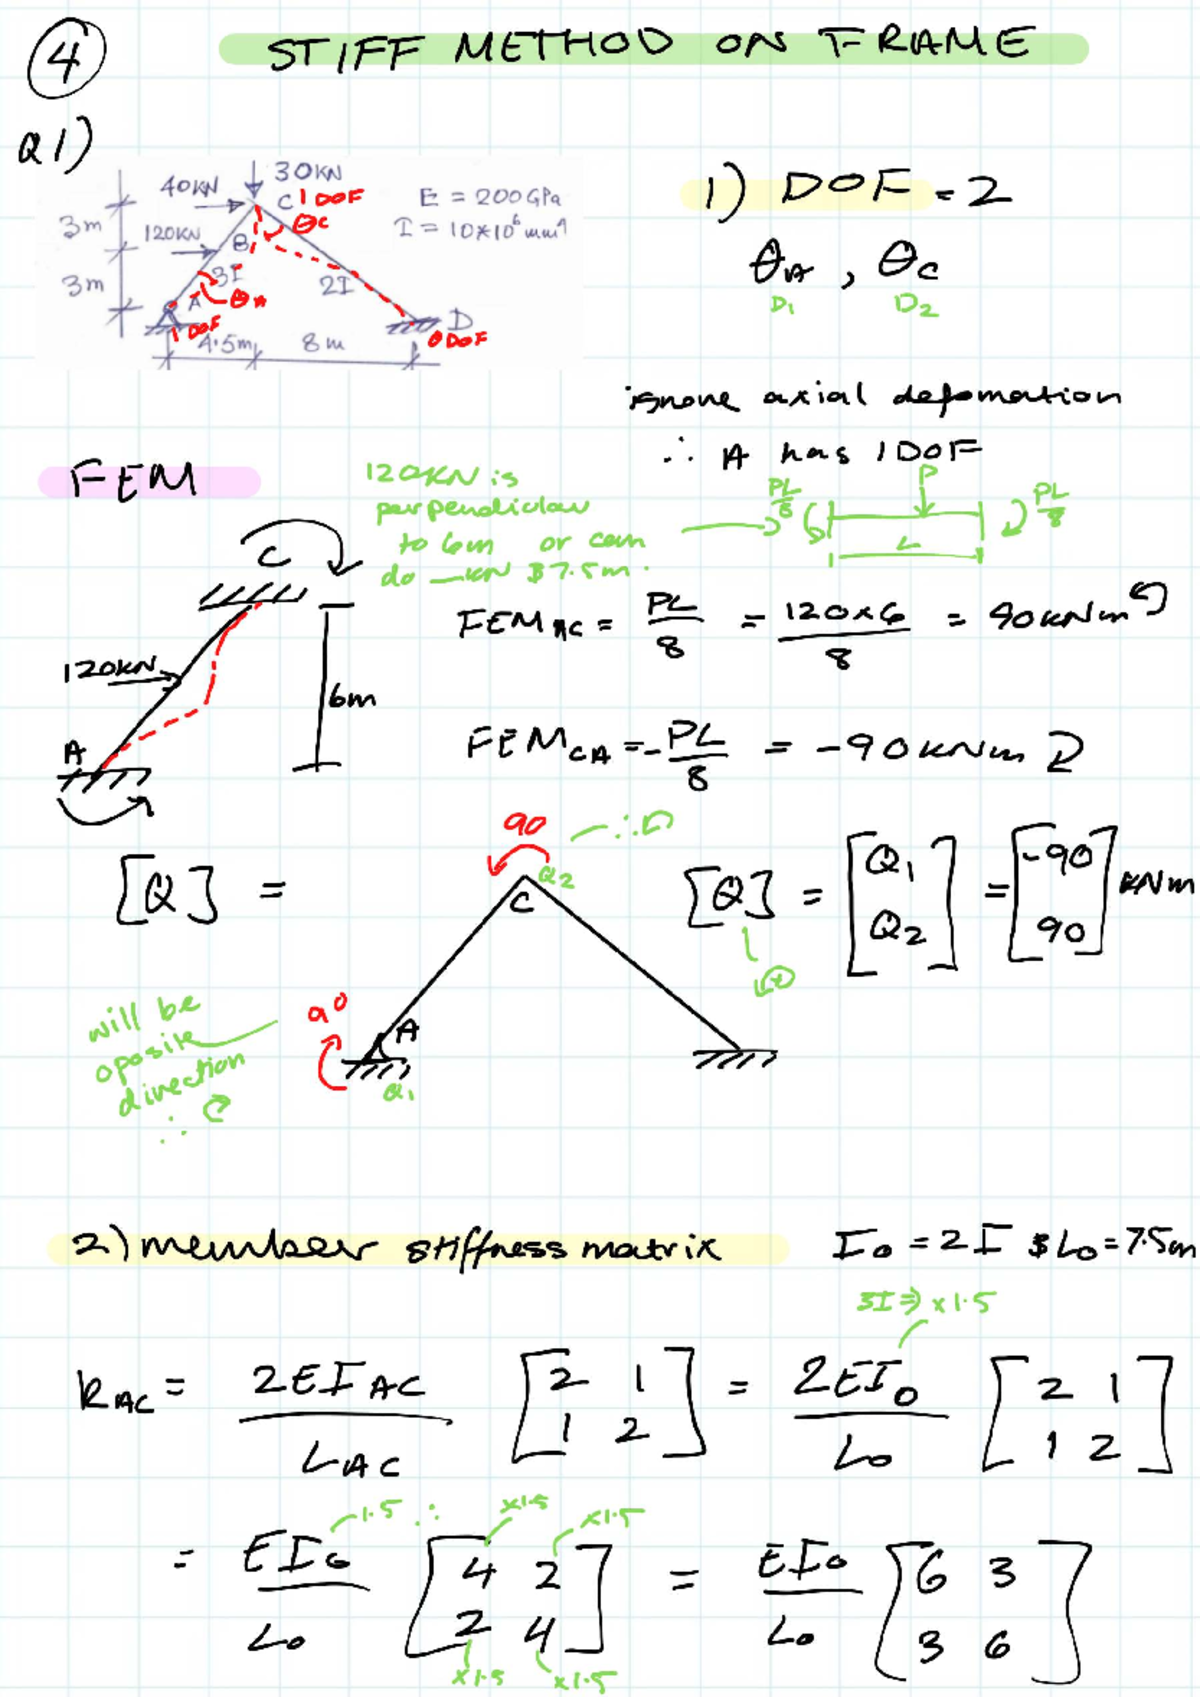 4
STIFF METHOD ON FRAME
Q1)
30KN
40KN
C 1 DOF
E = 200GPa
θc
I = 10*10⁶ mm⁴
3m
120KN
B
3I
2I
3m
A
θA
D
1 DOF
0 DOF
4.5m
8m
1) DOF = 2
θA , θC
D1 D2
ignore axial defomation
∴ A has 1DOF
FEM
120KN is
perpendicular
to 6m or can
do —KN & 7.5m.
P
PL/8
PL/8
L
C
120KN
6m
A
FEM AC = PL/8 = 120×6/8 = 90KNm
FEM CA = -PL/8 = -90KNm
[Q] =
90
∴
Q2
C
[Q] = [Q1 Q2] = [-90 90] KNm
+
90
A
Q1
will be
oposite
direction
∴
2) member stiffness matrix
I0 = 2I & L0 = 7.5m
3I ⇒ ×1.5
KAC = 2EIAC/LAC [2 1 1 2] = 2EI0/L0 [2 1 1 2]
1.5 ∴ ×1.5 ×1.5
= EI0/L0 [4 2 2 4] = EI0/L0 [6 3 3 6]
×1.5 ×1.5